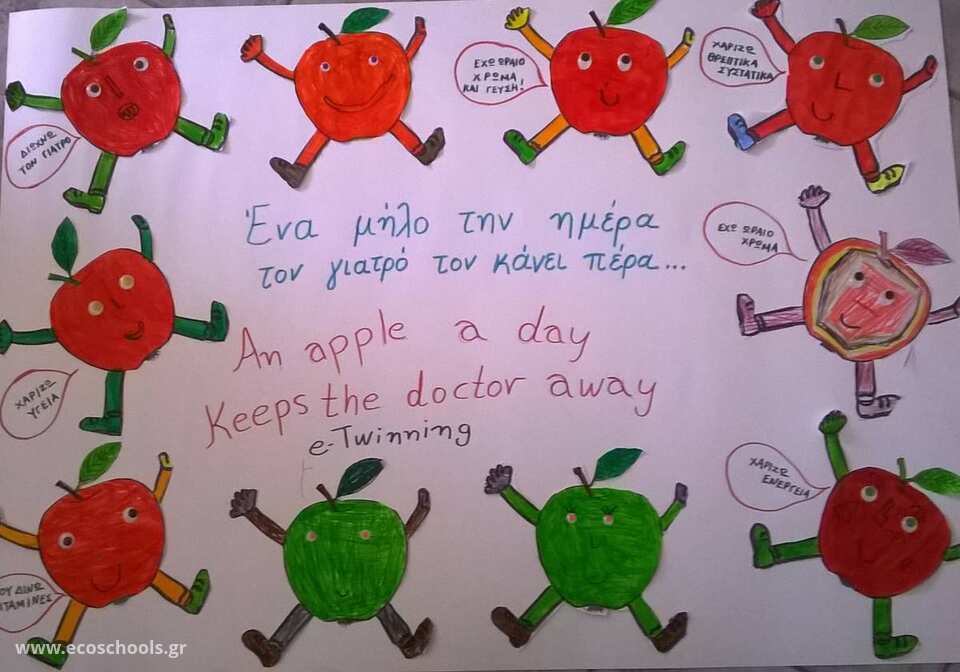 ΔΙΩΧΝΩ
ΤΟΝ ΓΙΑΤΡΟ
ΕΧΩ ΩΡΑΙΟ
ΧΡΩΜΑ
ΚΑΙ ΓΕΥΣΗ!
ΧΑΡΙΖΩ
ΘΡΕΠΤΙΚΑ
ΣΥΣΤΑΤΙΚΑ
Ένα μήλο την ημέρα
τον γιατρό τον κάνει πέρα...
ΕΧΩ ΩΡΑΙΟ
ΧΡΩΜΑ
An apple a day
Keeps the doctor away
e-Twinning
ΧΑΡΙΖΩ
ΥΓΕΙΑ
ΧΑΡΙΖΩ
ΕΝΕΡΓΕΙΑ
ΟΥ ΔΙΝΩ
ΙΤΑΜΙΝΕΣ
www.ecoschools.gr